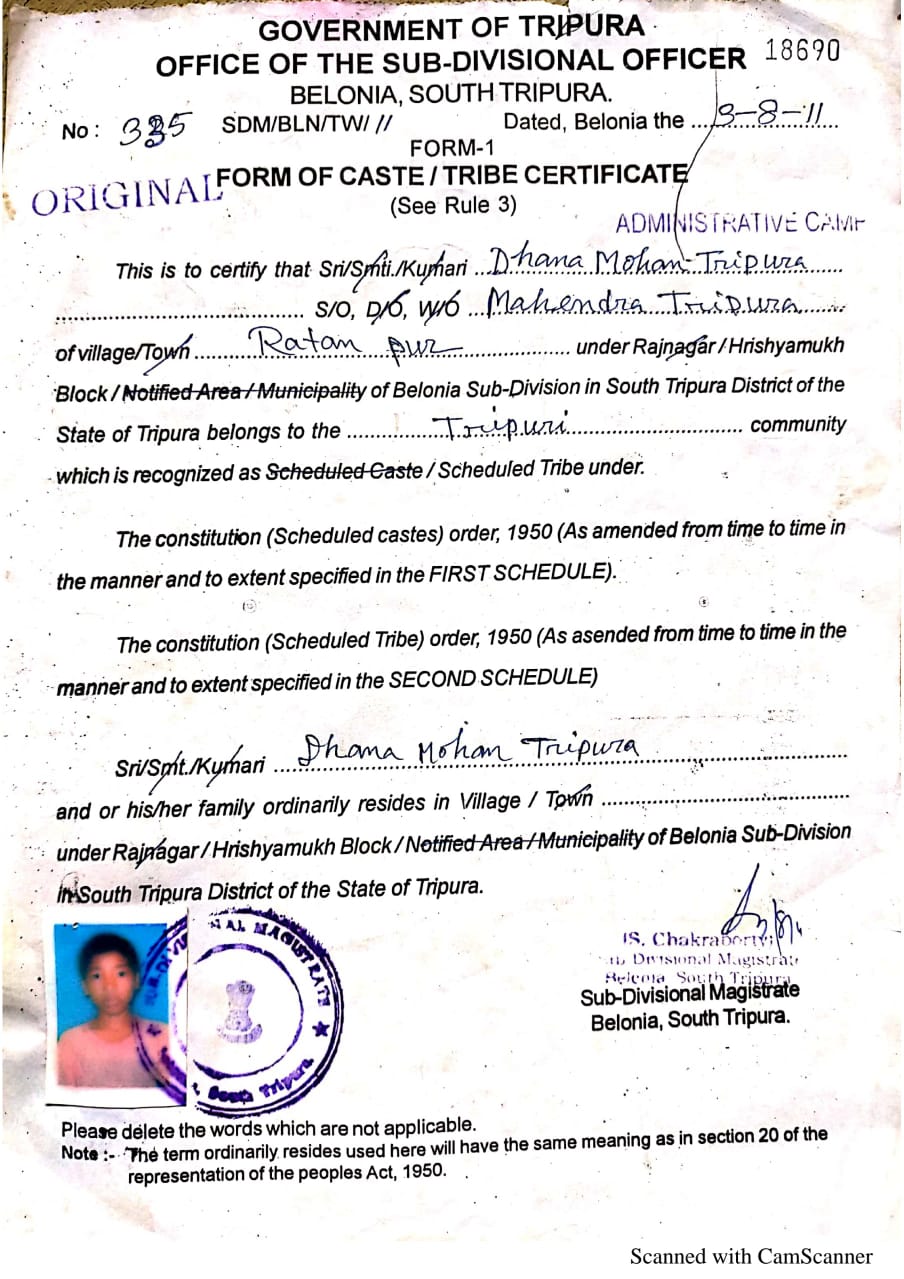 GOVERNMENT OF TRIPURA
OFFICE OF THE SUB-DIVISIONAL OFFICER 18690
BELONIA, SOUTH TRIPURA.
No : 335 SDM/BLN/TW/ 11 Dated, Belonia the ...-8-11
FORM-1
ORIGINAL FORM OF CASTE / TRIBE CERTIFICATE
(See Rule 3)
ADMINISTRATIVE CAMP
This is to certify that Sri/Smti./Kumari ..Dhana Mohan Tripura......
...................................... S/O, D/O, W/O ..Mahendra Tripura........
of village/Town ............Ratan pur........................ under Rajnagar / Hrishyamukh
Block / Notified Area / Municipality of Belonia Sub-Division in South Tripura District of the
State of Tripura belongs to the ...............Tripuri.............................. community
which is recognized as Scheduled Caste / Scheduled Tribe under.
The constitution (Scheduled castes) order, 1950 (As amended from time to time in
the manner and to extent specified in the FIRST SCHEDULE).
The constitution (Scheduled Tribe) order, 1950 (As asended from time to time in the
manner and to extent specified in the SECOND SCHEDULE)
Sri/Smt./Kumari ....Dhana Mohan Tripura..............................
and or his/her family ordinarily resides in Village / Town ......................................
under Rajnagar / Hrishyamukh Block / Notified Area / Municipality of Belonia Sub-Division
in South Tripura District of the State of Tripura.
S. Chakraborty
Sub Divisional Magistrate
Belonia South Tripura
Sub-Divisional Magistrate
Belonia, South Tripura.
MAGISTRATE
South Tripura
Please delete the words which are not applicable.
Note :- The term ordinarily resides used here will have the same meaning as in section 20 of the
representation of the peoples Act, 1950.
Scanned with CamScanner